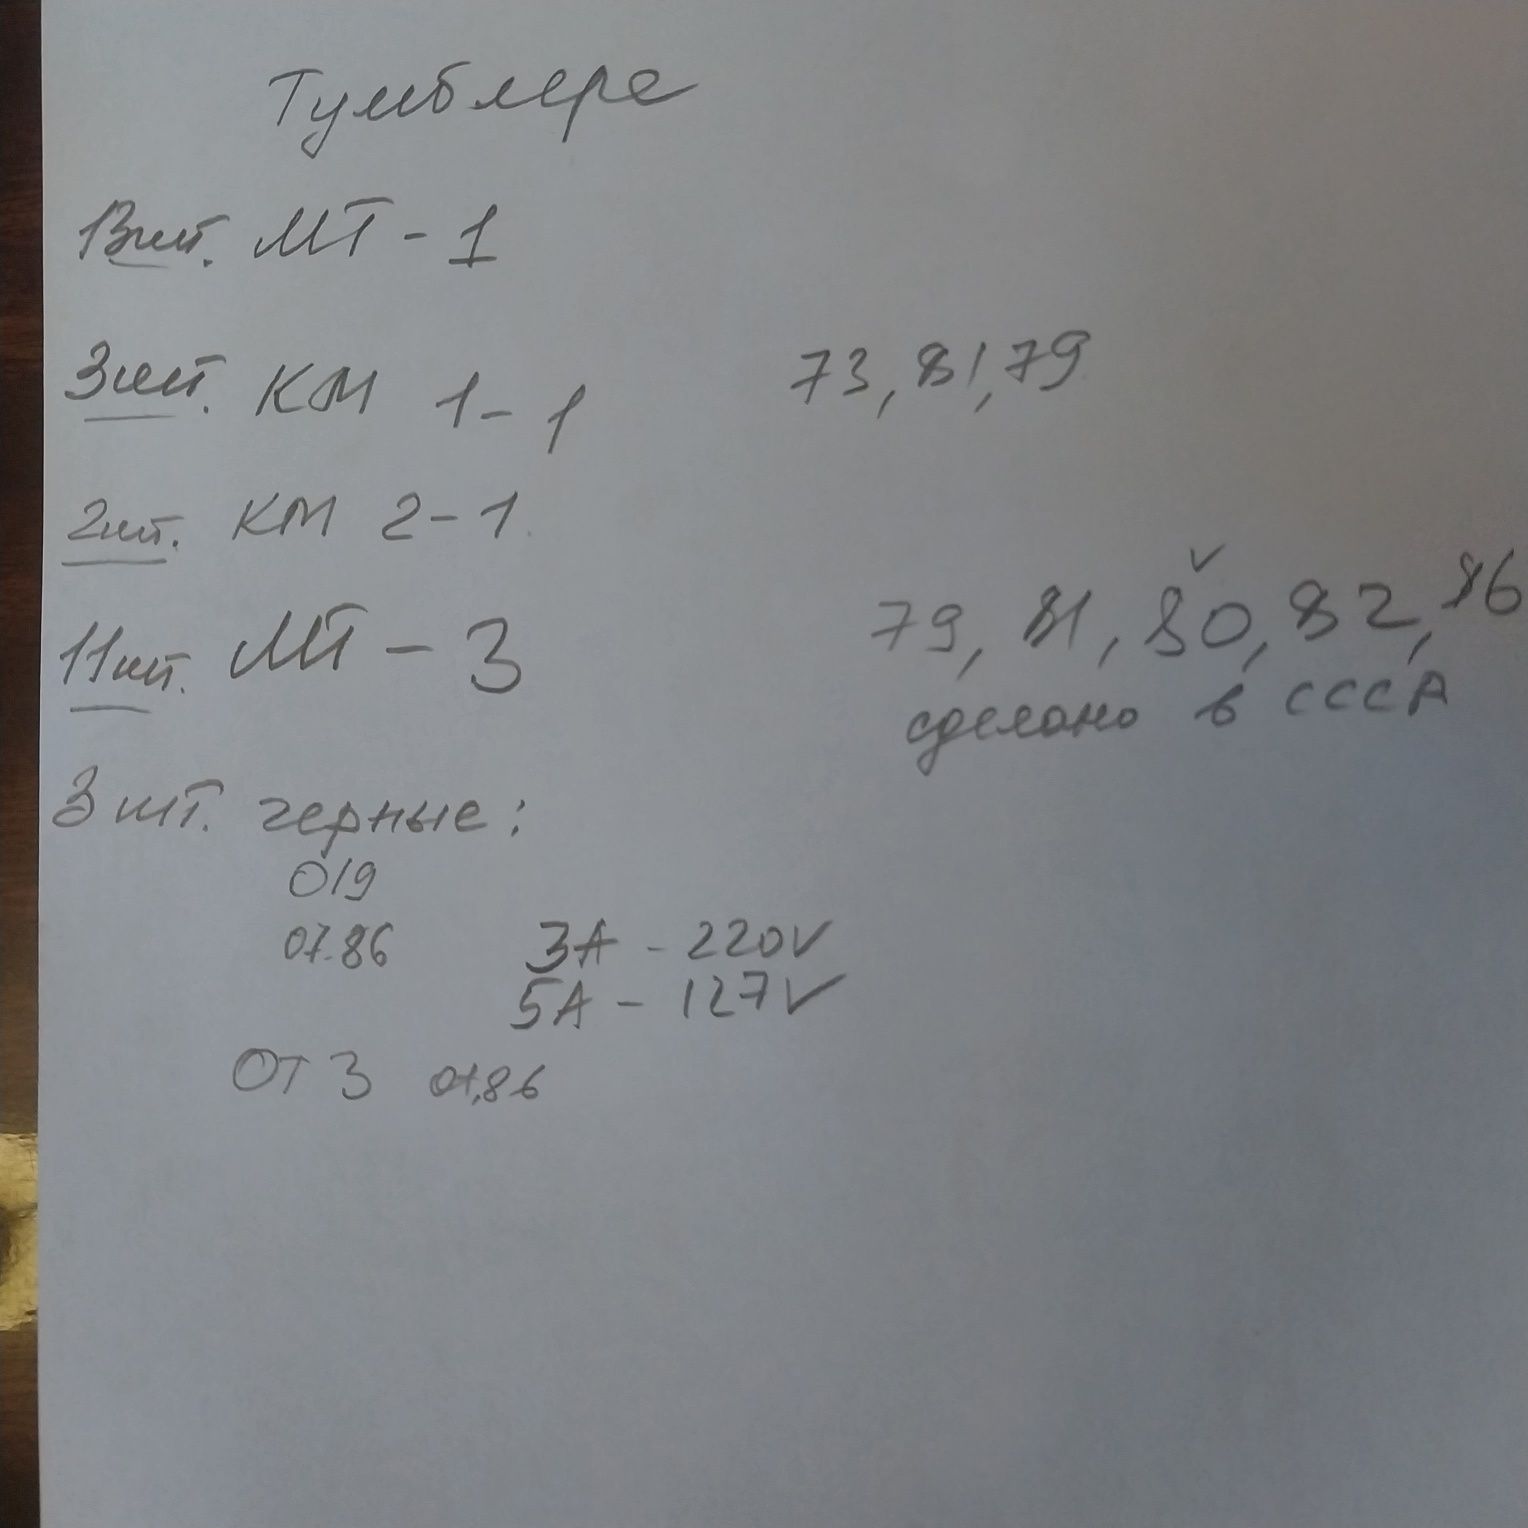 Тумблера
13шт. МТ-1
3шт. КМ 1-1 73, 81, 79
2шт. КМ 2-1
11шт. МТ-3 79, 81, 80, 82, 86
сделано в СССР
3 шт. черные:
019
07.86 3А - 220V
5А - 127V
ОТ 3 07.86